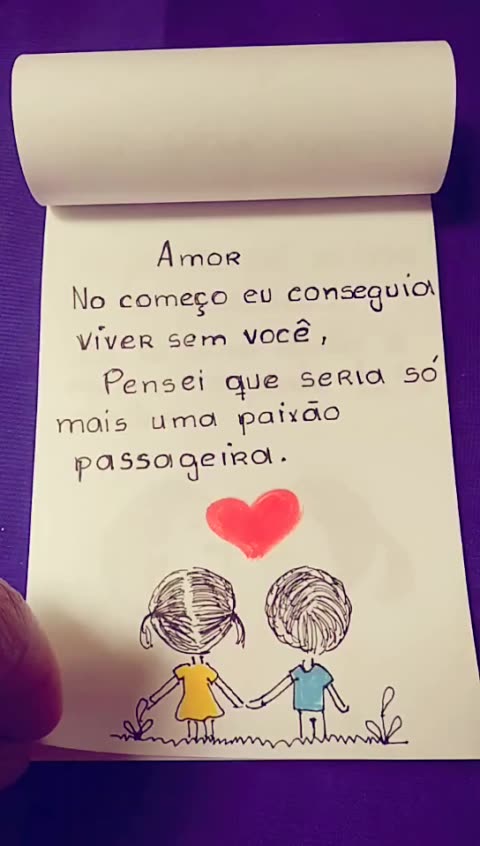 Amor
No começo eu conseguia
viver sem você,
Pensei que seria só
mais uma paixão
passageira.